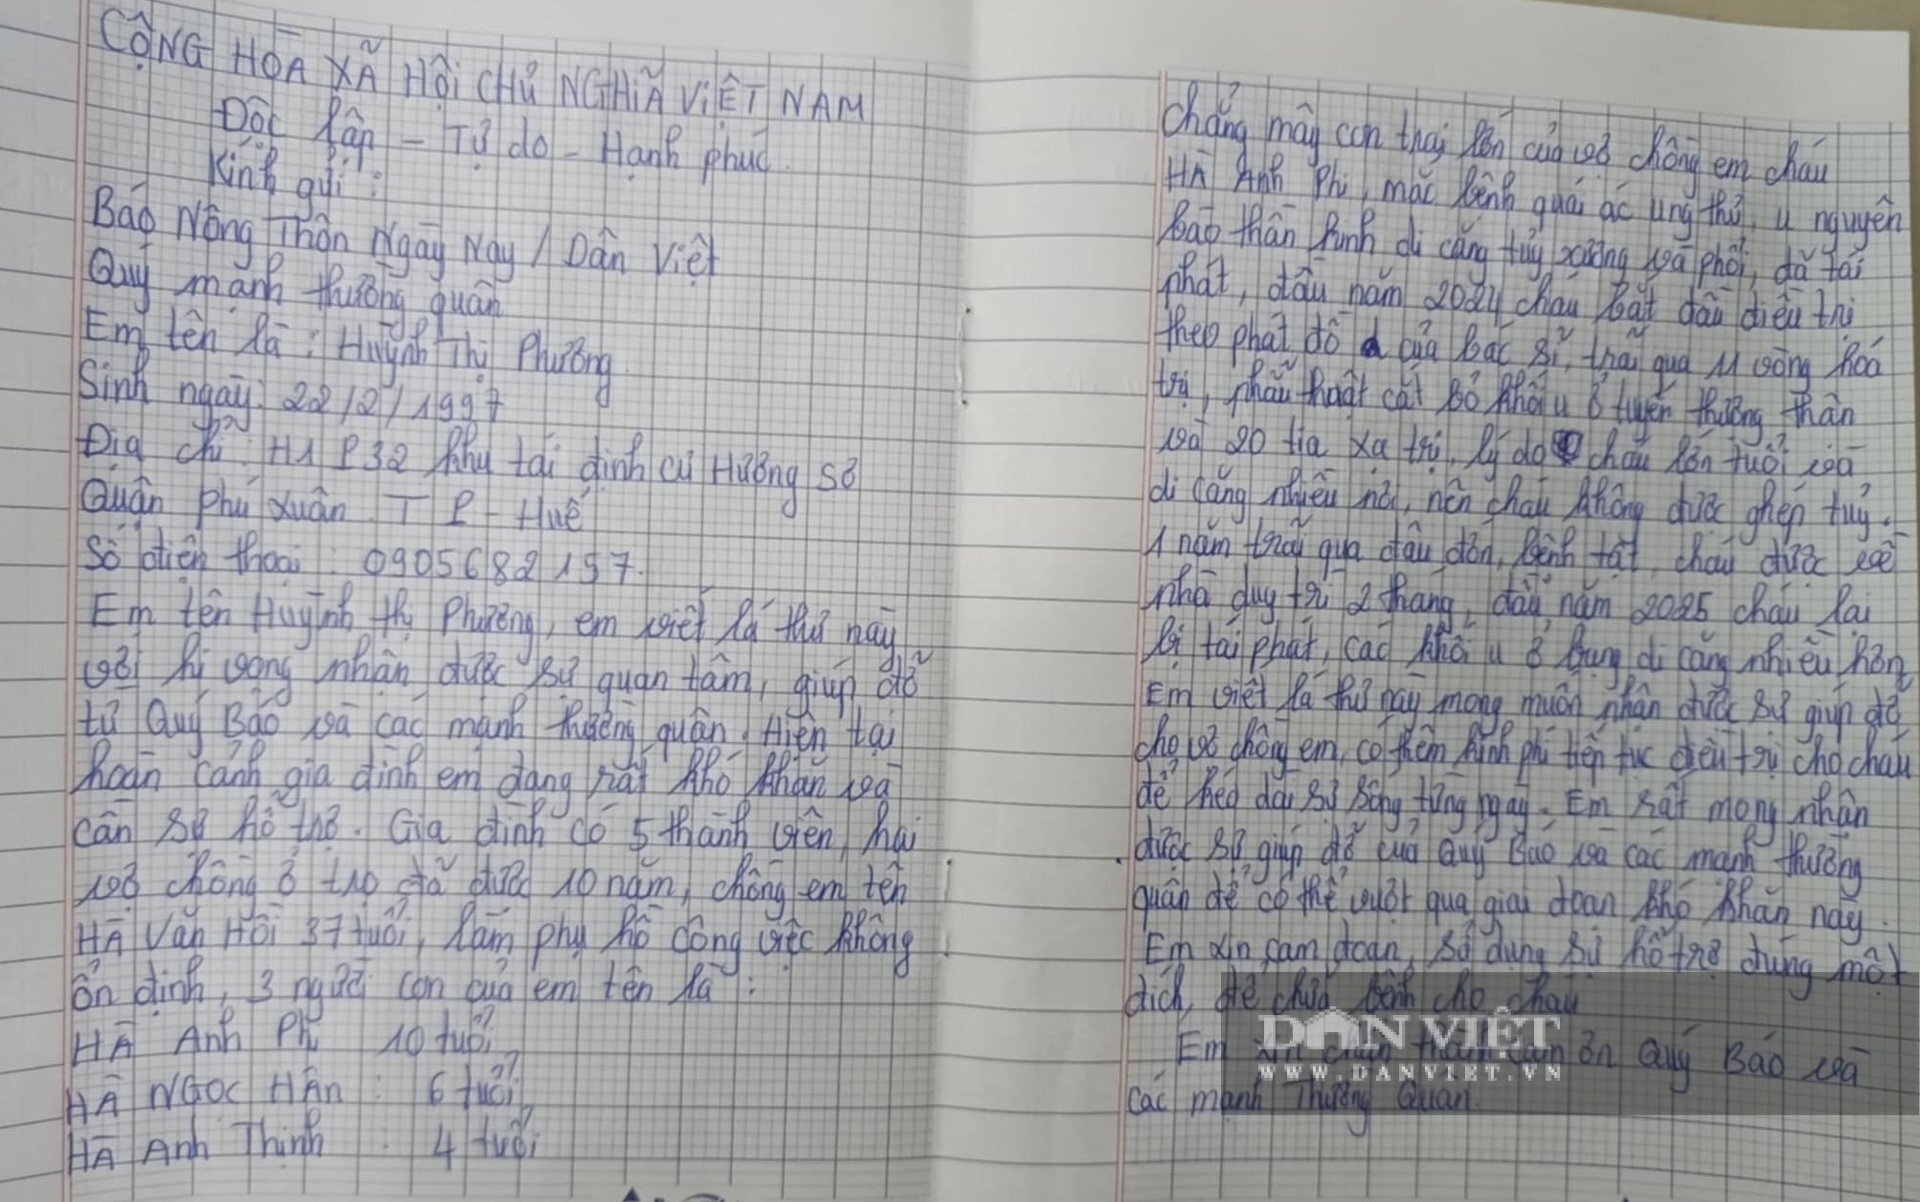 CỘNG HÒA XÃ HỘI CHỦ NGHĨA VIỆT NAM
Độc lập - Tự do - Hạnh phúc.
Kính gửi :
Báo Nông Thôn Ngày Nay / Dân Việt
Quý mạnh thường quân
Em tên là : Huỳnh Thị Phường
Sinh ngày: 22/2/1997
Địa chỉ : H1 P32 khu tái định cư Hương Sơ
Quận Phú Xuân TP - Huế
Số điện thoại : 0905682157.
Em tên Huỳnh thị Phường, em viết lá thư này
với hi vọng nhận được sự quan tâm, giúp đỡ
từ Quý Báo và các mạnh thường quân. Hiện tại
hoàn cảnh gia đình em đang rất khó khăn và
cần sự hỗ trợ. Gia đình có 5 thành viên, hai
vợ chồng ở trọ đã được 10 năm, chồng em tên
HÀ Văn Hồi 37 tuổi, làm phụ hồ công việc không
ổn định, 3 người con của em tên là :
HÀ Anh Phi 10 tuổi
HÀ NGỌC HÂN : 6 tuổi
HÀ Anh Thịnh : 4 tuổi
Chẳng mây con thai lớn của vợ chồng em cháu
HÀ Anh Phi, mắc bệnh quái ác ung thư, u nguyên
bào thần kinh di căng tủy xương và phổi, đã tái
phát, đầu năm 2024 cháu bắt đầu điều trị
theo phát đồ của bác sĩ, trãi qua 11 vòng hóa
trị, phẫu thuật cắt bỏ khối u ở tuyến thượng thận
và 20 tia xạ trị, lý do cháu lớn tuổi và
di căng nhiều nơi, nên cháu không được ghép tủy.
1 năm trãi qua đâu đớn, bệnh tật, cháu được về
nhà duy trì 2 tháng, đầu năm 2025 cháu lại
bị tái phát, các khối u ở bụng di căng nhiều hơn,
Em viết lá thư này mong muốn nhận được sự giúp đỡ
cho vợ chồng em, có thêm kinh phí tiếp tục điều trị cho cháu
để kéo dài sự sống từng ngày. Em rất mong nhận
được sự giúp đỡ của Quý Báo và các mạnh thường
quân để có thể vượt qua giai đoạn khó khăn này.
Em xin cam đoan, sử dụng sự hổ trợ đúng một
đích, để chữa bệnh cho cháu
Em xin chân thành cảm ơn Quý Báo và
các mạnh Thường Quân.
DÂN VIỆT
WWW.DANVIET.VN